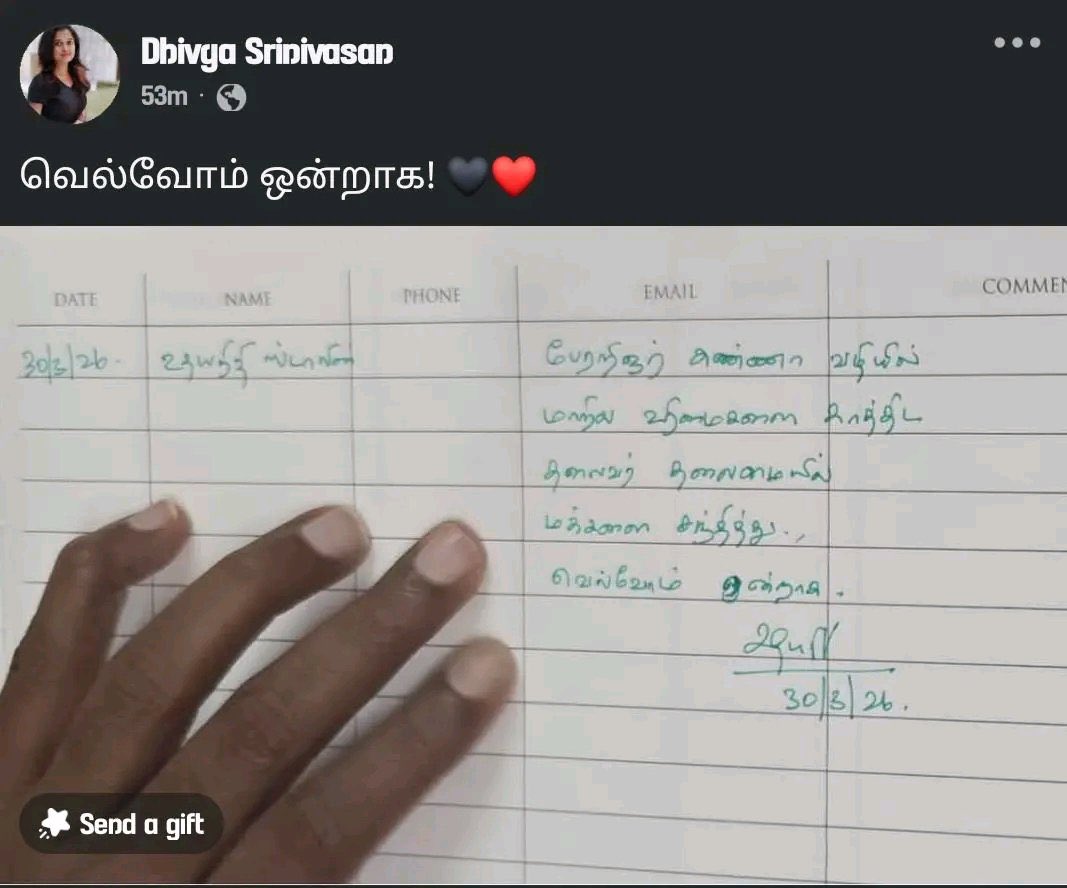 Dhivya Srinivasan
53m ·
வெல்வோம் ஒன்றாக! 🖤❤️
DATE NAME PHONE EMAIL COMMEN
30/3/26. உதயநிதி ஸ்டாலின் பேரறிஞர் அண்ணா வழியில்
மாநில உரிமைகளை காத்திட
தலைவர் தலைமையில்
மக்களை சந்தித்து..,
வெல்வோம் ஒன்றாக.
30/3/26.
Send a gift